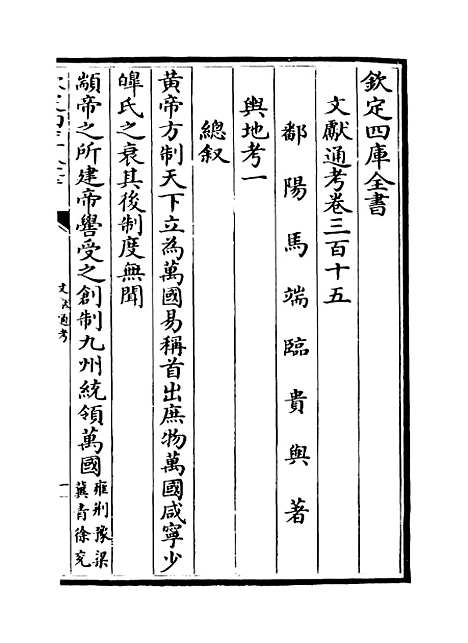 欽定四庫全書
文獻通考卷三百十五
鄱陽馬端臨貴與著
輿地考一
總叙
黃帝方制天下立為萬國易稱首出庶物萬國咸寧少
皥氏之衰其後制度無聞
顓帝之所建帝嚳受之創制九州統領萬國
雍荆豫梁
冀青徐兖
文獻通考
一